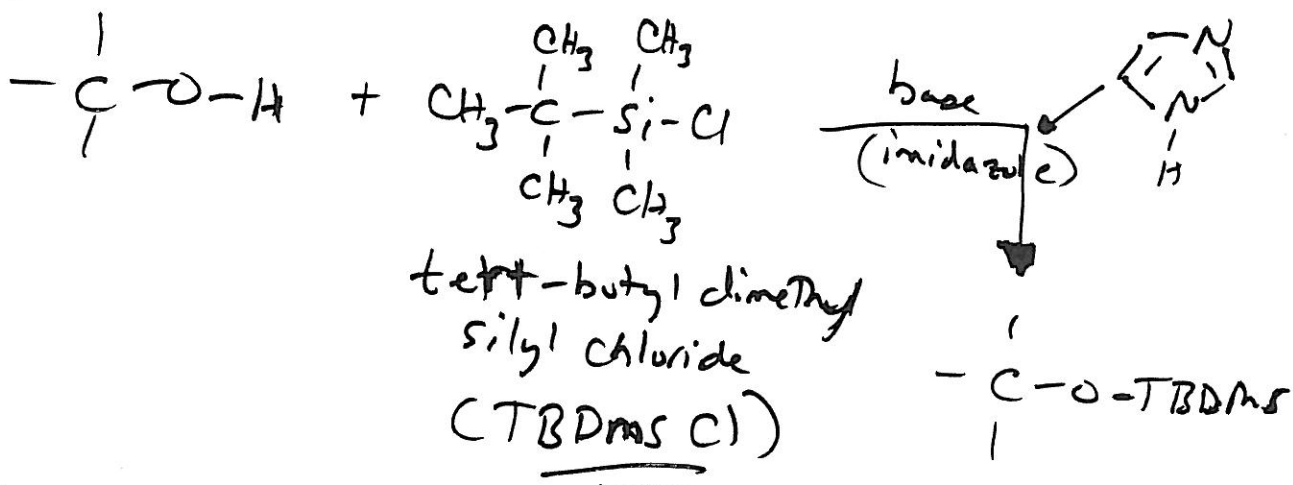 CH3 CH3
— C — O — H + CH3 — C — Si — Cl
CH3 CH3
base
(imidazole)
N
N
H
tert-butyl dimethyl
silyl chloride
(TBDMS Cl)
— C — O — TBDMS